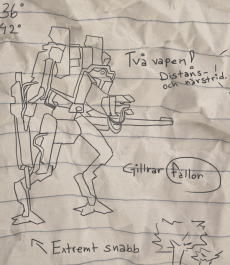 36°
42°
Två vapen!
Distans-!
och närstrid.
Gillrar fällor
Extremt snabb